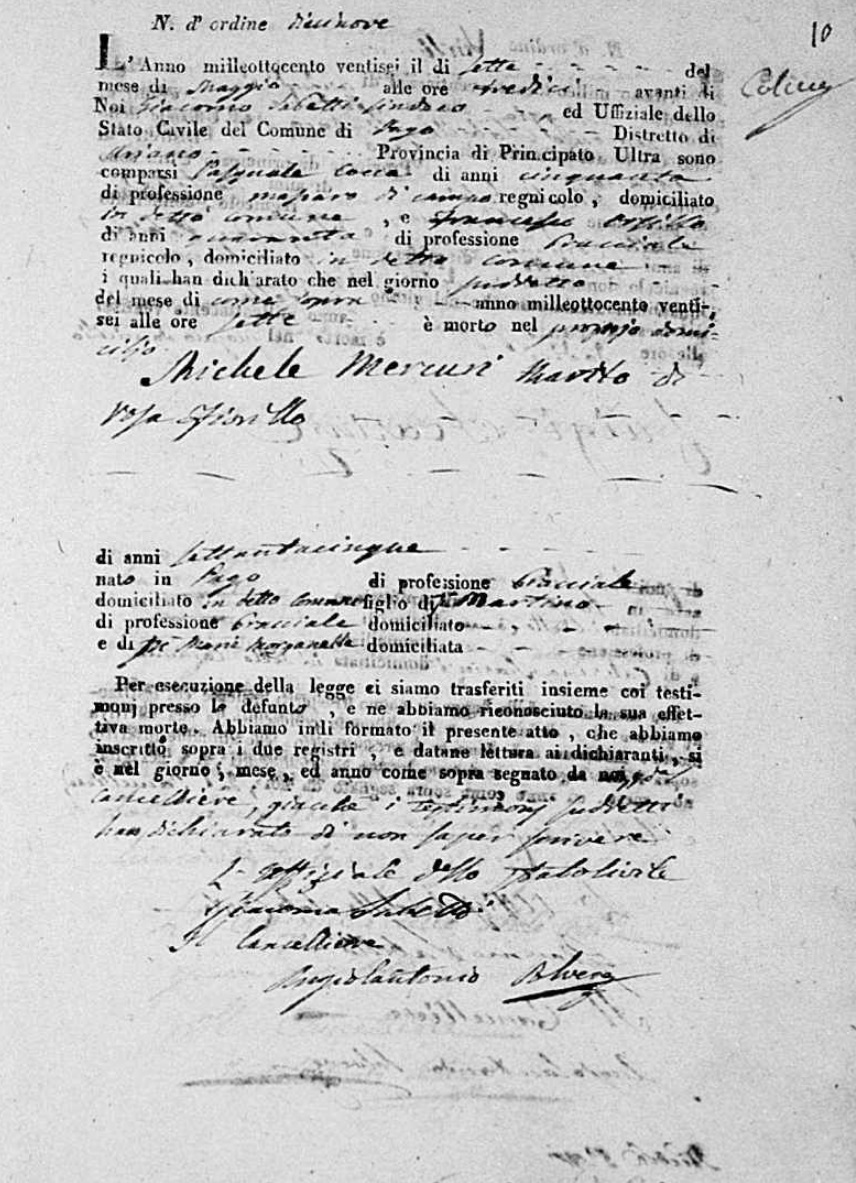 N. d' ordine diecinove
10
L' Anno milleottocento ventisei il di sette del
mese di Maggio alle ore tredici avanti di
Noi Giacomo Sabetti Sindaco ed Uffiziale dello
Stato Civile del Comune di Pago Distretto di
Ariano Provincia di Principato Ultra sono
comparsi Pasquale Cocca di anni cinquanta
di professione di campo regnicolo, domiciliato
in detto comune, e Francesco
di anni quaranta di professione Bracciale
regnicolo, domiciliato in detto comune
i quali han dich'arato che nel giorno suddetto
del mese di come sopra anno milleottocento venti-
sei alle ore sette è morto nel proprio domi-
cilio
Michele Mercuri Marito di
Rosa Fiorillo
di anni settantacinque
nato in Pago di professione Bracciale
domiciliato in detto comune figlio di Martino
di professione bracciale domiciliato
e di Maria Morganella domiciliata
Per esecuzione della legge ci siamo trasferiti insieme coi testi-
monj presso lo defunto, e ne abbiamo riconosciuto la sua effet-
tiva morte. Abbiamo indi formato il presente atto, che abbiamo
inscritto sopra i due registri, e datane lettura ai dichiaranti, si
è nel giorno, mese, ed anno come sopra segnato da noi
Cancelliere, giacche i testimonj suddetti
han dichiarato di non saper scrivere
L' Uffiziale dello Stato Civile
Giacomo Sabetti
Il Cancelliere
Angiolantonio Polvere